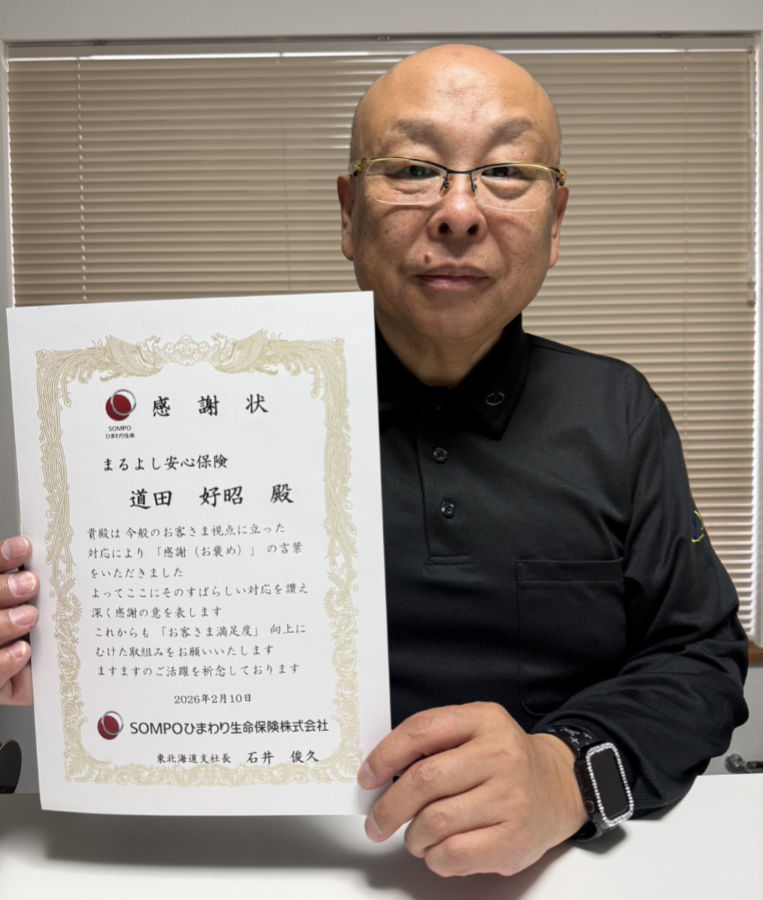 感謝状
SOMPO
ひまわり生命
まるよし安心保険
道田 好昭 殿
貴殿は今般のお客さま視点に立った
対応により「感謝（お褒め）」の言葉
をいただきました
よってここにそのすばらしい対応を讃え
深く感謝の意を表します
これからも「お客さま満足度」向上に
むけた取組みをお願いいたします
ますますのご活躍を祈念しております
2026年2月10日
SOMPOひまわり生命保険株式会社
東北海道支社長 石井 俊久